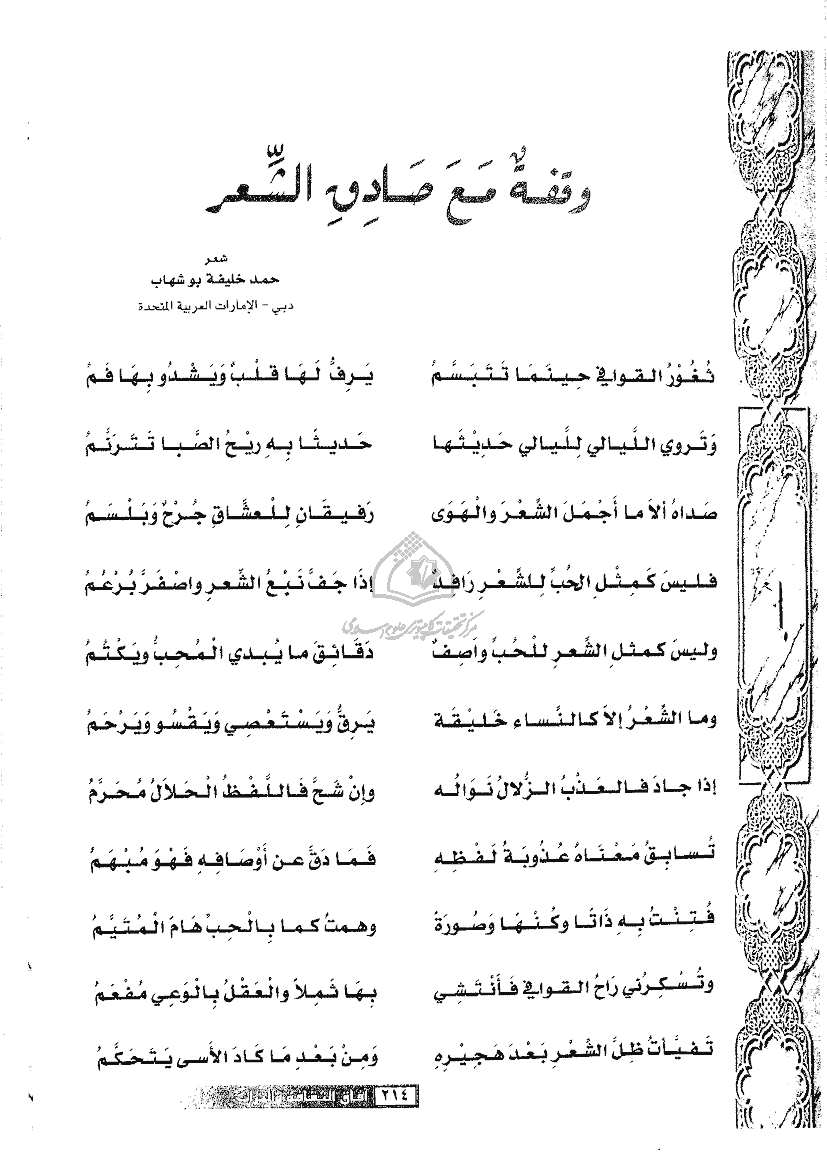 وقفةٌ مَعَ صَادِقِ الشِّعر
شعر
حمد خليفة بو شهاب
دبي - الإمارات العربية المتحدة
ثُغُوْرُ القوافي حِينَمَا تَتَبَسَّمُ يَرِفُّ لَهَا قلْبٌ وَيَشْدُو بِهَا فَمُ
وَتَروي اللَّيالي لِلَّيالي حَدِيْثَها حَديثًا بِهِ رِيْحُ الصَّبا تَتَرَنَّمُ
صَداهُ ألاَ ما أجْمَلَ الشِّعْرَ والْهَوَى رَفيقَانِ لِلْعشَّاقِ جُرْحٌ وَبَلْسَمُ
فليسَ كَمِثْلِ الحُبِّ لِلشِّعْرِ رَافِدٌ إذَا جَفَّ نَبْعُ الشِّعرِ واصْفَرَّ بُرْعُمُ
وليسَ كمثلِ الشِّعرِ للْحُبِّ واَصِفٌ دَقَائِقَ ما يُبدي الْمُحِبُّ ويَكْتُمُ
وما الشِّعْرُ إلاَ كالنِّساءِ خَلِيْقَةً يَرِقُّ وَيَسْتَعْصِي وَيَقْسُو وَيَرْحَمُ
إذا جادَ فالعَذْبُ الزُّلالُ نَوَالُه وإنْ شَحَّ فَاللَّفْظُ الْحَلالُ مُحَرَّمُ
تُسابِقُ مَعْنَاهُ عُذُوبَةُ لَفْظِهِ فَمَا دَقَّ عن أوْصَافِهِ فَهْوَ مُبْهَمُ
فُتِنْتُ بِهِ ذَاتًا وكُنْهًا وَصُورَةً وهمتُ كما بِالْحبِّ هَامَ الْمُتَيَّمُ
وتُسْكِرُني رَاحُ القوافي فَأنْتَشِي بِهَا ثَمِلاً والْعَقْلُ بِالْوَعيِ مُفْعَمُ
تَفيَّأتُ ظِلَّ الشِّعْرِ بَعْدَ هَجيْرِهِ وَمِنْ بَعْدِ مَا كادَ الأسى يَتَحَكَّمُ
٢١٤